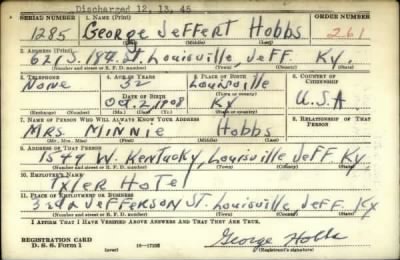 Discharged 12, 13, 45
SERIAL NUMBER 1. NAME (Print) ORDER NUMBER
1285 George Jeffert Hobbs 261
(First) (Middle) (Last)
2. ADDRESS (Print)
621 S. 18th St. Louisville Jeff. Ky.
(Number and street or R. F. D. number) (Town) (County) (State)
3. TELEPHONE 4. AGE IN YEARS 5. PLACE OF BIRTH 6. COUNTRY OF CITIZENSHIP
None 32 Louisville
DATE OF BIRTH (Town or county)
Oct. 2, 1908 Ky U.S.A.
(Mo.) (Day) (Yr.) (State or country)
7. NAME OF PERSON WHO WILL ALWAYS KNOW YOUR ADDRESS 8. RELATIONSHIP OF THAT PERSON
Mrs. Minnie Hobbs
(Mr., Mrs., Miss) (First) (Middle) (Last)
9. ADDRESS OF THAT PERSON
1549 W. Kentucky, Louisville Jeff Ky.
(Number and street or R. F. D. number) (Town) (County) (State)
10. EMPLOYER'S NAME
Tyler Hotel
11. PLACE OF EMPLOYMENT OR BUSINESS
3rd & Jefferson St. Louisville Jeff. Ky
(Number and street or R. F. D. number) (Town) (County) (State)
I AFFIRM THAT I HAVE VERIFIED ABOVE ANSWERS AND THAT THEY ARE TRUE.
REGISTRATION CARD
D. S. S. Form 1 (over) 16—17105 George Hobbs
(Registrant's signature)